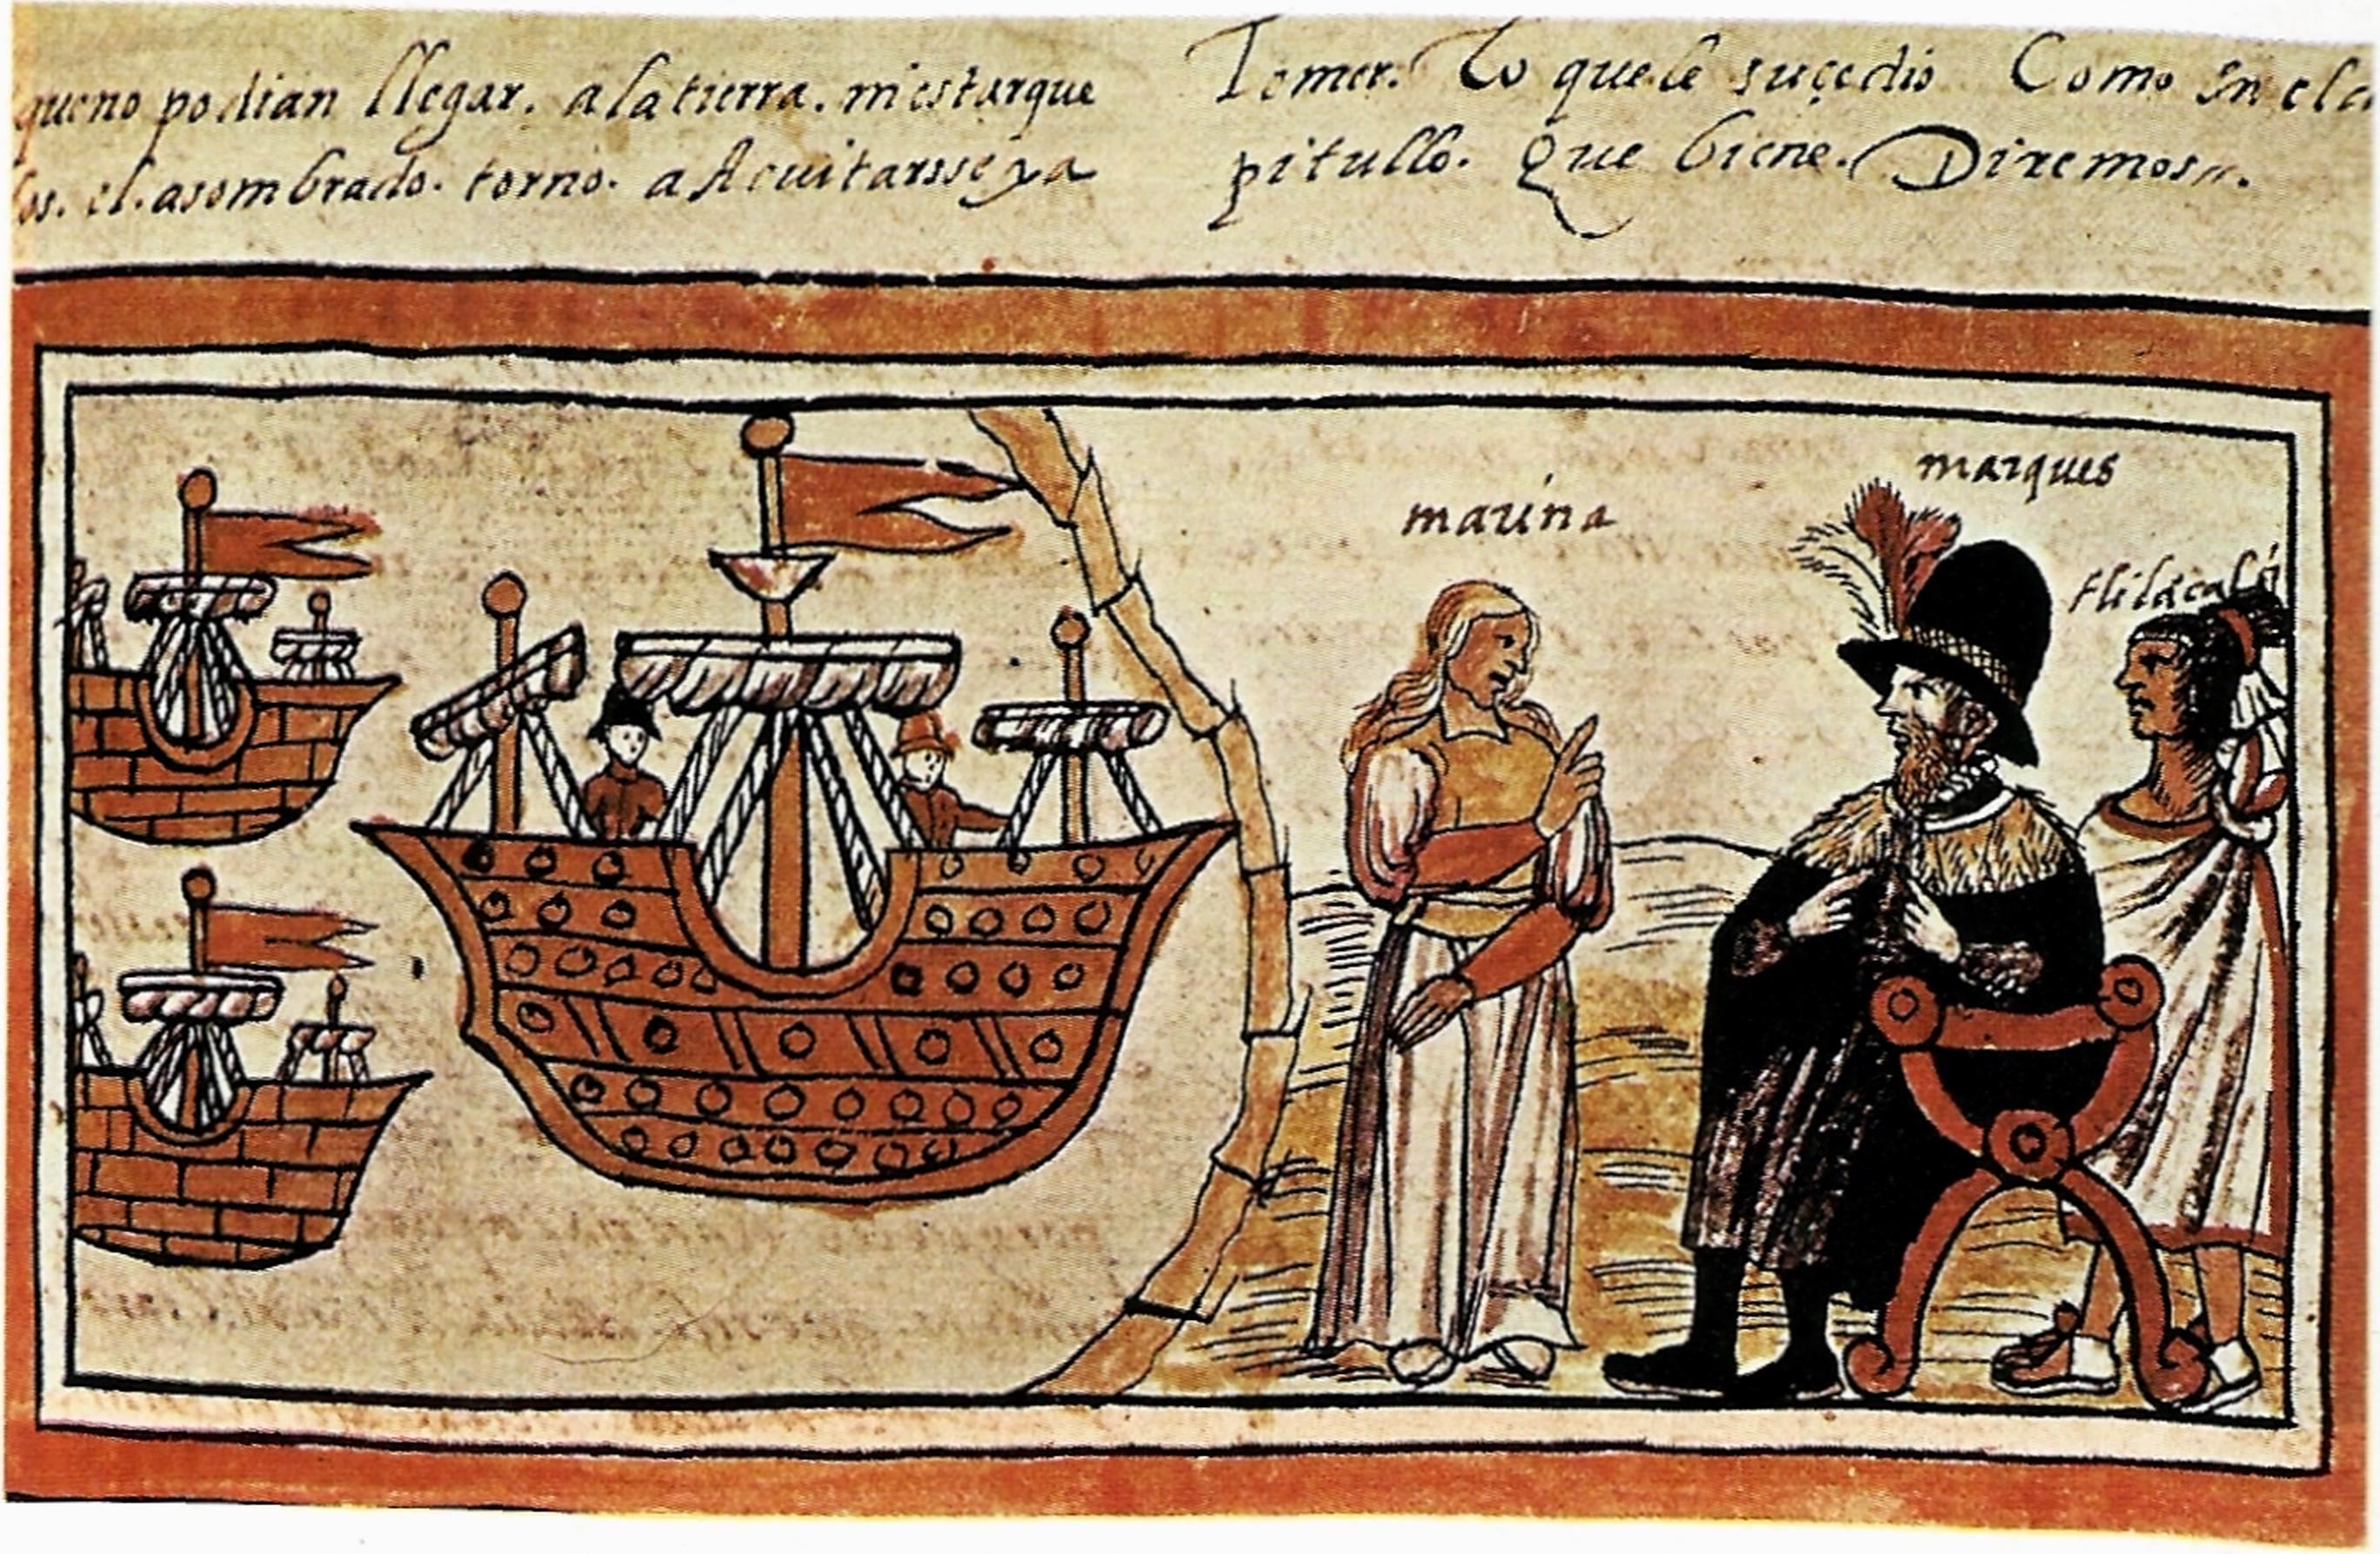 que no podian llegar. a la tierra. ni estar que
los. el. asombrado. torno. a Acuitarsse ya
Tomer. Lo que le suçedio Como En el ca
pitullo. Que biene. Diremos
marina
marques